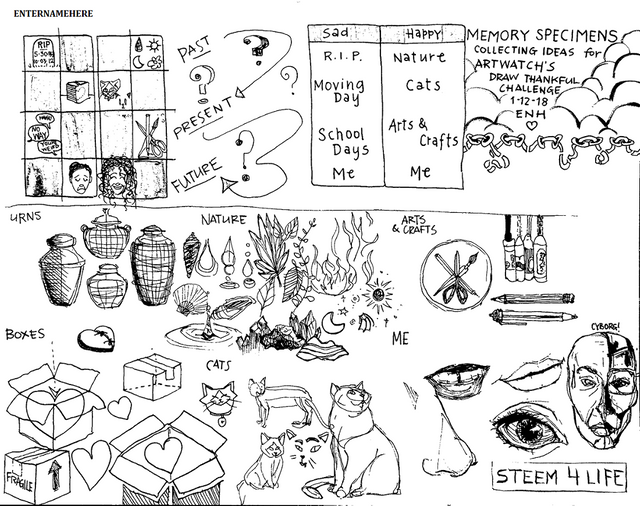 ENTERNAMEHERE
RIP
PAST
PRESENT
FUTURE
NO WAY
Sad
HAPPY
R.I.P.
Nature
Moving Day
Cats
School Days
Arts & Crafts
Me
Me
MEMORY SPECIMENS
COLLECTING IDEAS for
ARTWATCH'S
DRAW THANKFUL
CHALLENGE
1-12-18
ENH
URNS
NATURE
ARTS
& CRAFTS
BOXES
CATS
ME
CYBORG!
FRAGILE
STEEM 4 LIFE